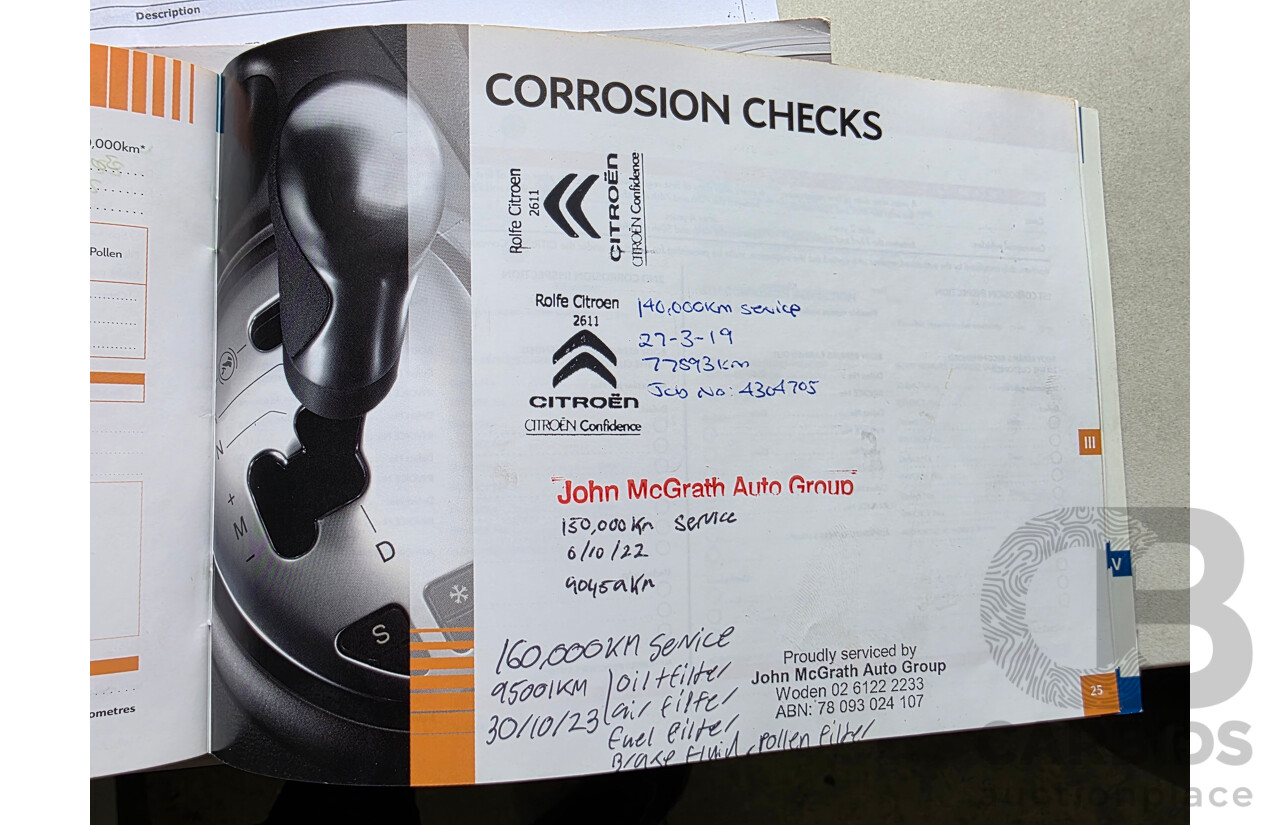 Description
,000km*
Pollen
ometres
N
+
M
-
D
S
CORROSION CHECKS
Rolfe Citroen
2611
CITROËN
CITROËN Confidence
Rolfe Citroen
2611
CITROËN
CITROËN Confidence
140,000km service
27-3-19
77593km
Job No: 4304705
John McGrath Auto Group
150,000Km Service
6/10/22
90459Km
160,000KM Service
95001KM
30/10/23
oil+filter
air filter
Fuel Filter
Brake Fluid, Pollen Filter
Proudly serviced by
John McGrath Auto Group
Woden 02 6122 2233
ABN: 78 093 024 107
III
V
25
auctionplace